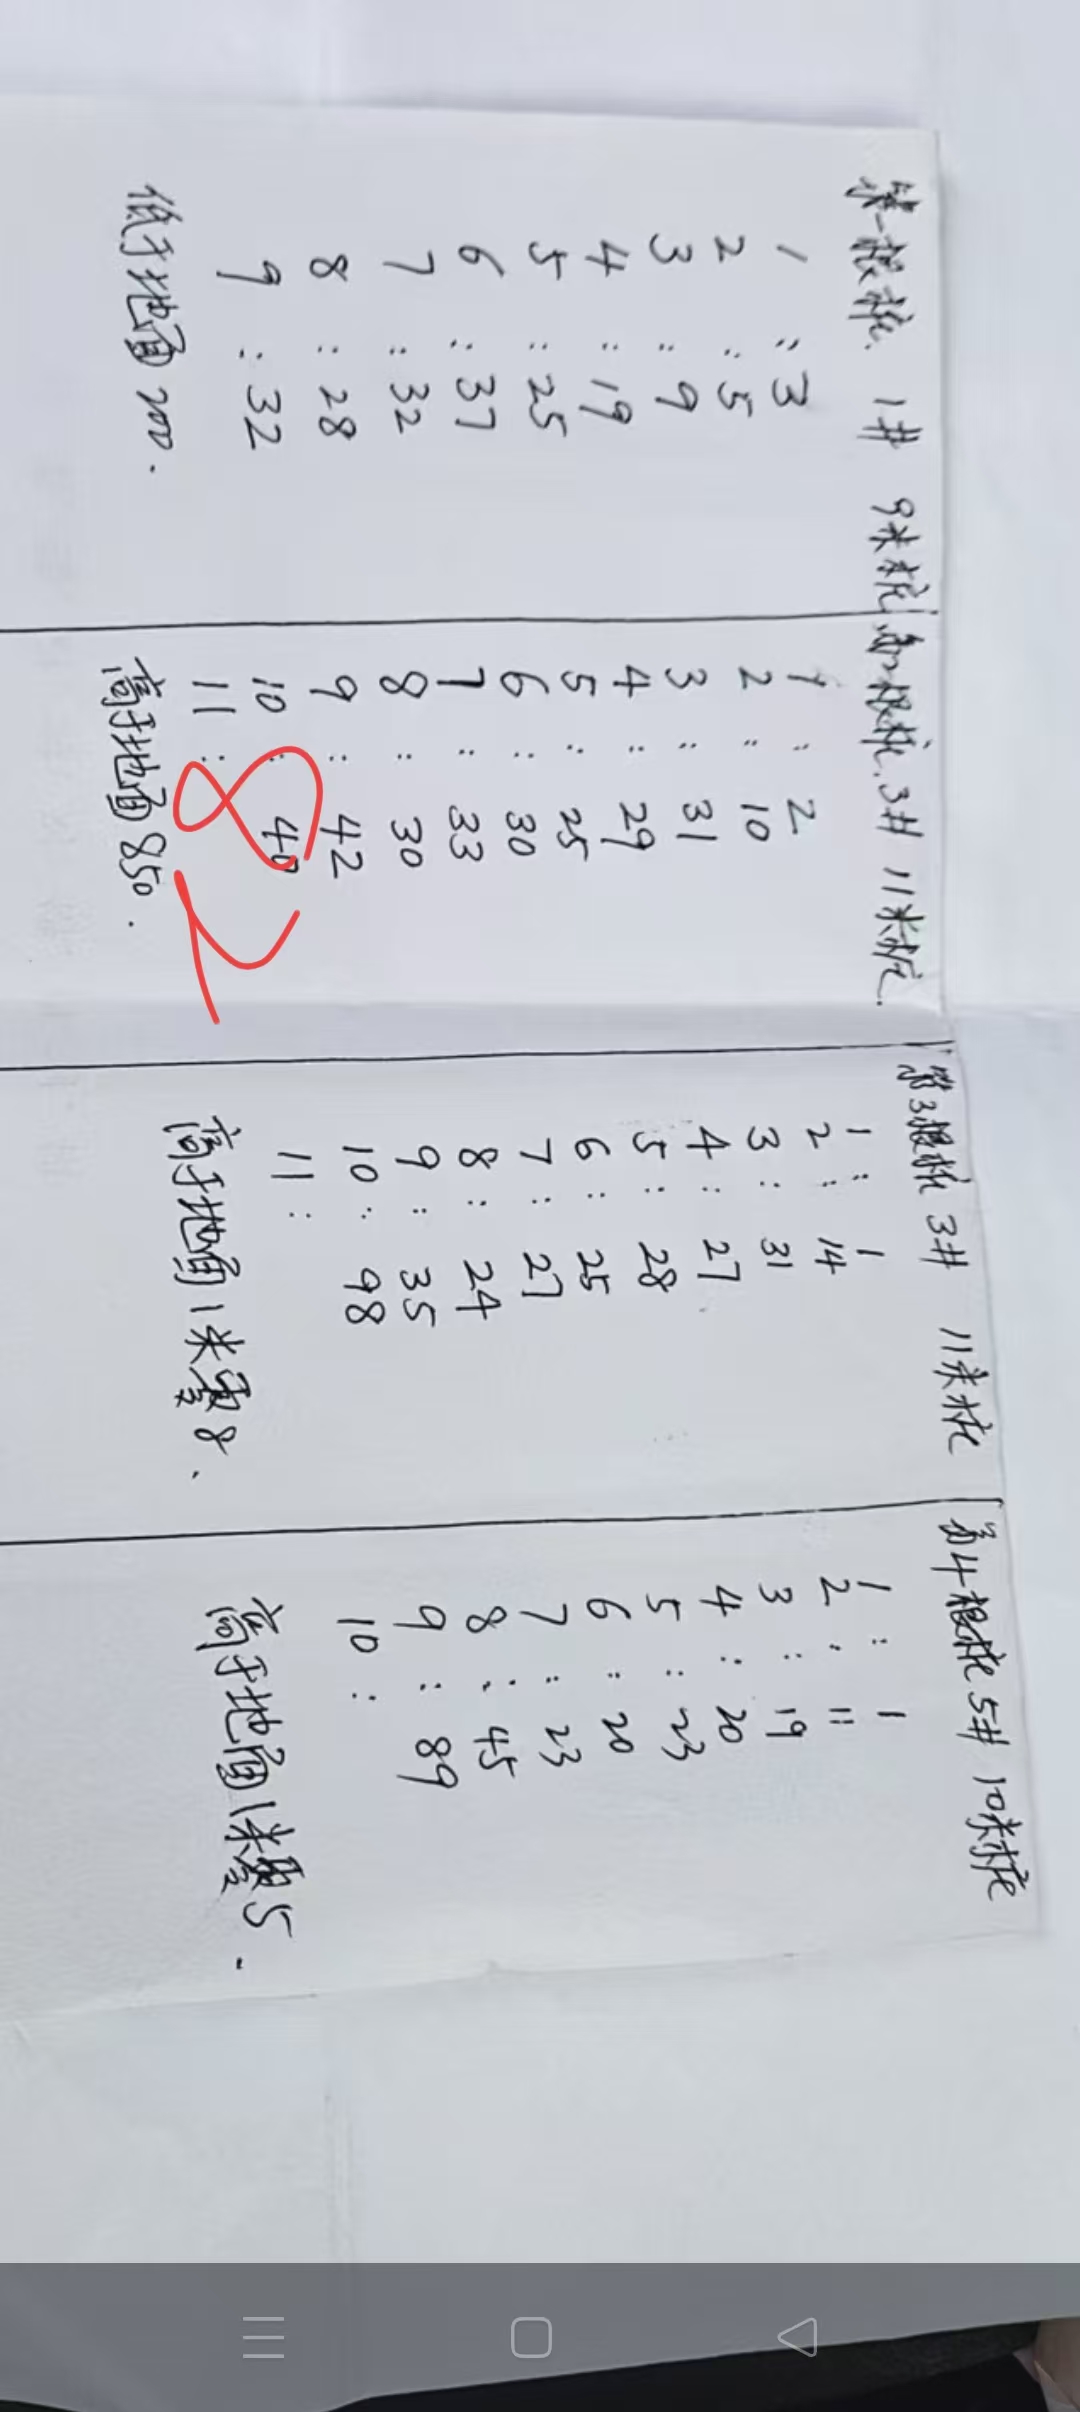 第一根桩. 1# 9米桩
1 : 3
2 : 5
3 : 9
4 : 19
5 : 25
6 : 37
7 : 32
8 : 28
9 : 32
低于地面200.
第2根桩. 3# 11米桩.
1 : 2
2 : 10
3 : 31
4 : 29
5 : 25
6 : 30
7 : 33
8 : 30
9 : 42
10 : 40
11 :
高于地面850.
82
第3根桩 3# 11米桩
1 : 1
2 : 14
3 : 31
4 : 27
5 : 28
6 : 25
7 : 27
8 : 24
9 : 35
10 : 98
11 :
高于地面1米零8.
第4根桩 5# 10米桩
1 : 1
2 : 11
3 : 19
4 : 20
5 : 23
6 : 20
7 : 23
8 : 45
9 : 89
10 :
高于地面1米零5.